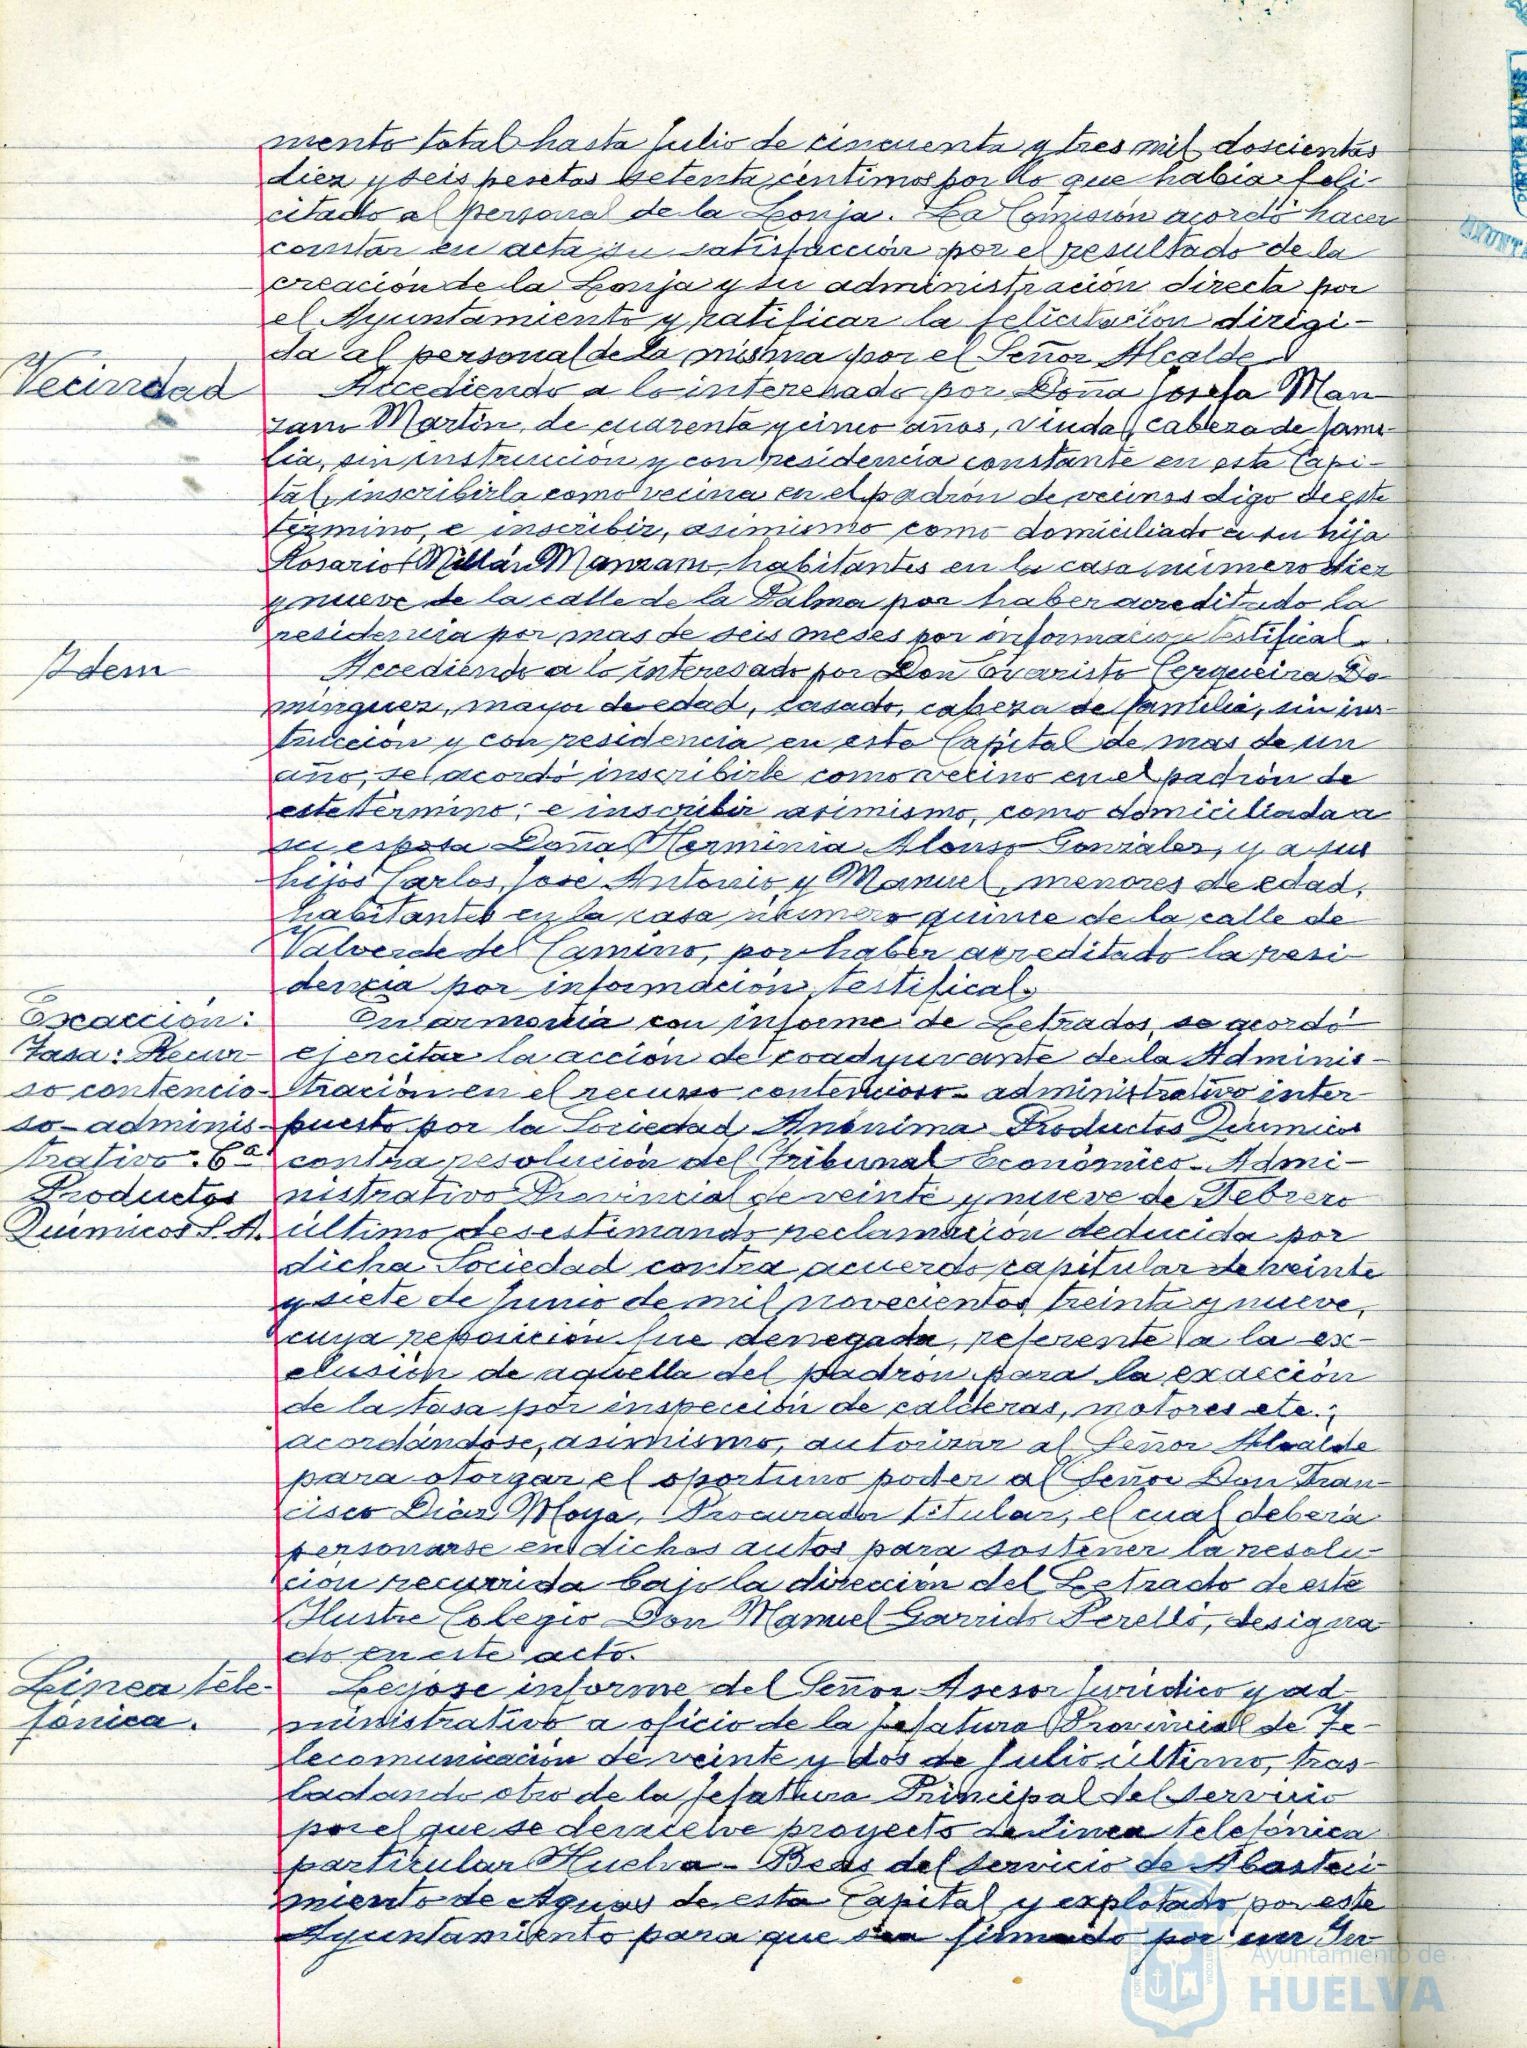 mento total hasta Julio de cincuenta y tres mil doscientas
diez y seis pesetas setenta céntimos por lo que había feli-
citado al personal de la Lonja. La Comisión acordó hacer
constar en acta su satisfacción por el resultado de la
creación de la Lonja y su administración directa por
el Ayuntamiento y ratificar la felicitación dirigi-
da al personal de la misma por el Señor Alcalde.
Vecindad
Accediendo a lo interesado por Doña Josefa Man
zano Martín, de cuarenta y cinco años, viuda, cabeza de fami-
lia, sin instrucción y con residencia constante en esta Capi-
tal, inscribirla como vecina en el padrón de vecinos digo de este
término, e inscribir, asimismo como domiciliado a su hija
Rosario Millán Manzano, habitantes en la casa número diez
y nueve de la calle de la Palma por haber acreditado la
residencia por mas de seis meses por información testifical.
Idem
Accediendo a lo interesado por Don Evaristo Cerqueira Do
minguez, mayor de edad, casado, cabeza de familia, sin ins-
trucción y con residencia en esta Capital de mas de un
año, se acordó inscribirle como vecino en el padrón de
este término; e inscribir asimismo, como domiciliada a
su esposa Doña Herminia Alonso Gonzalez, y a sus
hijos Carlos, Jose Antonio y Manuel, menores de edad,
habitantes en la casa número quince de la calle de
Valverde del Camino, por haber acreditado la resi-
dencia por información testifical.
Exacción:
Tasa: Recur-
so contencio-
so-adminis-
trativo: Cª
Productos
Químicos S.A.
En armonía con informe de Letrados, se acordó
ejercitar la acción de coadyuvante de la Adminis-
tración en el recurso contencioso-administrativo inter-
puesto por la Sociedad Anónima Productos Químicos
contra resolución del Tribunal Económico-Admi-
nistrativo Provincial de veinte y nueve de Febrero
último desestimando reclamación deducida por
dicha Sociedad contra acuerdo capitular de veinte
y siete de Junio de mil novecientos treinta y nueve,
cuya reposición fue denegada, referente a la ex-
clusión de aquella del padrón para la exacción
de la tasa por inspección de calderas, motores etc.;
acordándose, asimismo, autorizar al Señor Alcalde
para otorgar el oportuno poder al Señor Don Fran-
cisco Díaz Moya, Procurador titular, el cual deberá
personarse en dichos autos para sostener la resolu-
ción recurrida bajo la dirección del Letrado de este
Ilustre Colegio Don Manuel Garrido Perelló, designa
do en este acto.
Línea tele-
fónica.
Leyóse informe del Señor Asesor Jurídico y ad-
ministrativo a oficio de la Jefatura Provincial de Te-
lecomunicación de veinte y dos de Julio último, tras-
ladando otro de la Jefatura Principal del Servicio
por el que se devuelve proyecto de línea telefónica
particular Huelva-Beas del Servicio de Abasteci-
miento de Aguas de esta Capital y explotado por este
Ayuntamiento para que sea firmado por un In
Ayuntamiento de
HUELVA